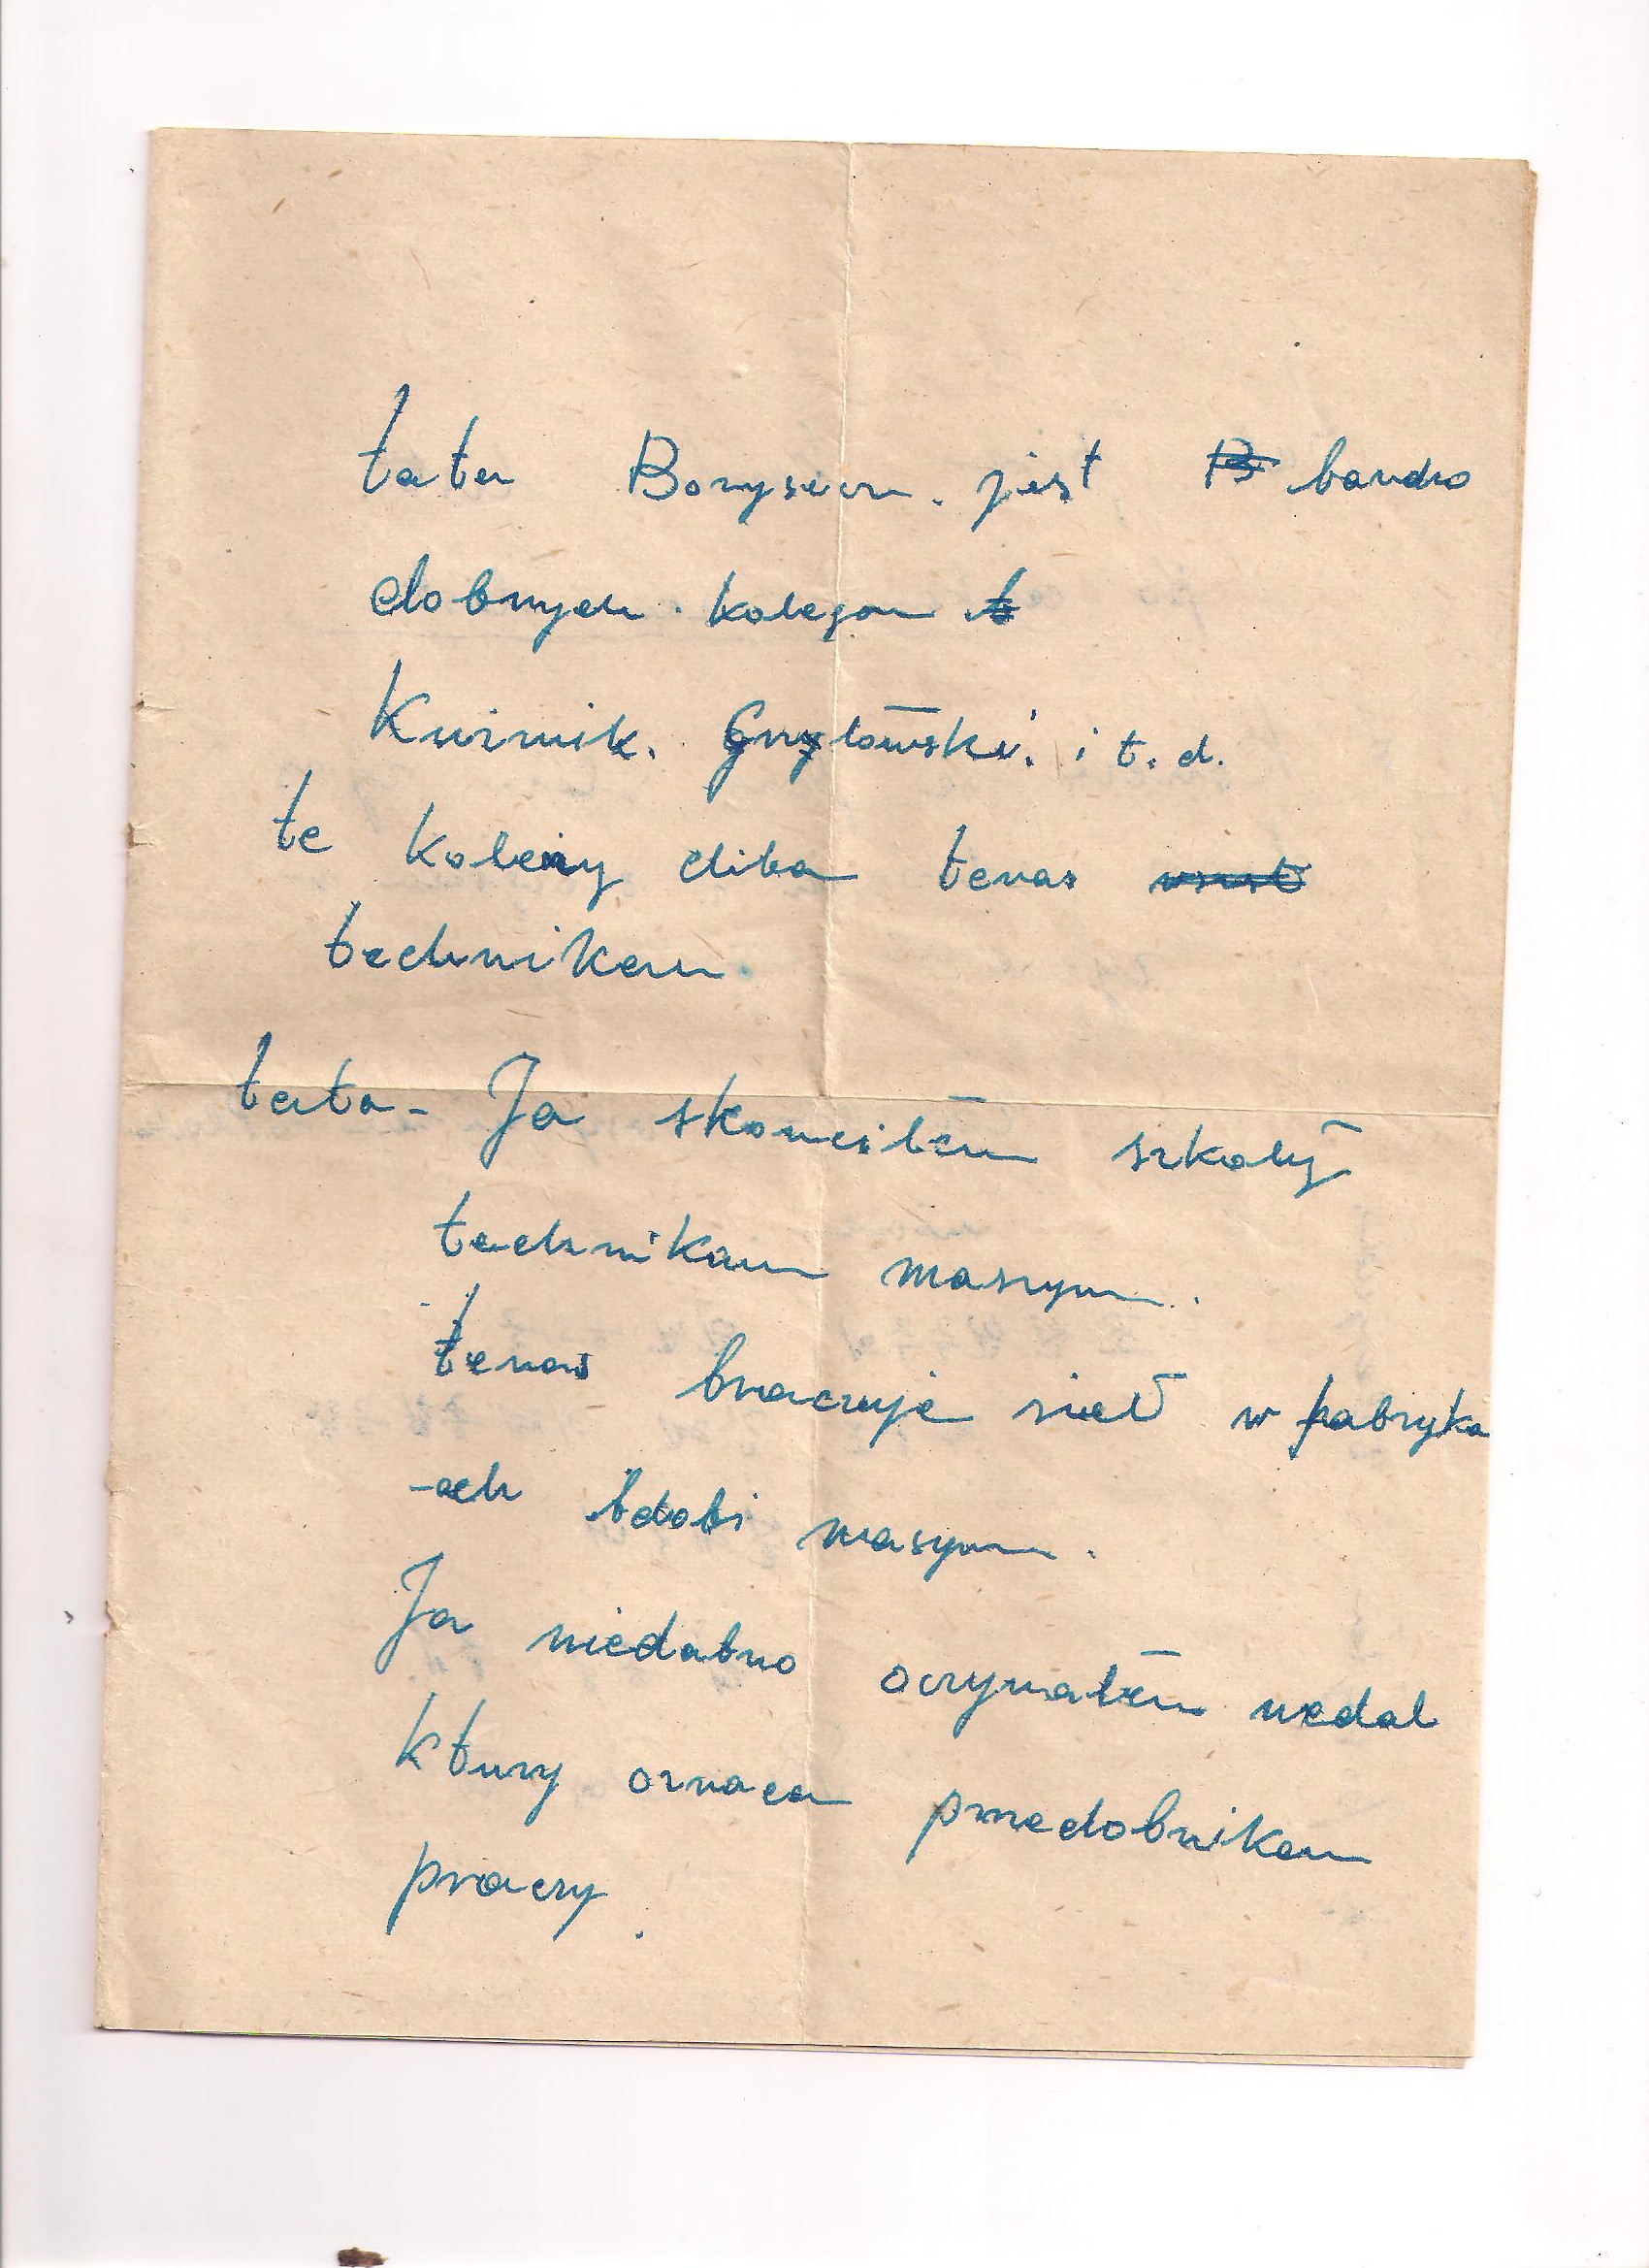 tatu Borysem. jest bardzo
dobnyem. kolegom
Kuirnik. Gryłowski. i t. d.
te koleży chiba teras
technikem
tato- Ja skonciłem szkoły
technikam maszyn.
teras bracuje sieć w fabryka
-ach bdobi masyn.
Ja niedabno oczymałem medal
ktury oznaca przedobnikem
praczy.